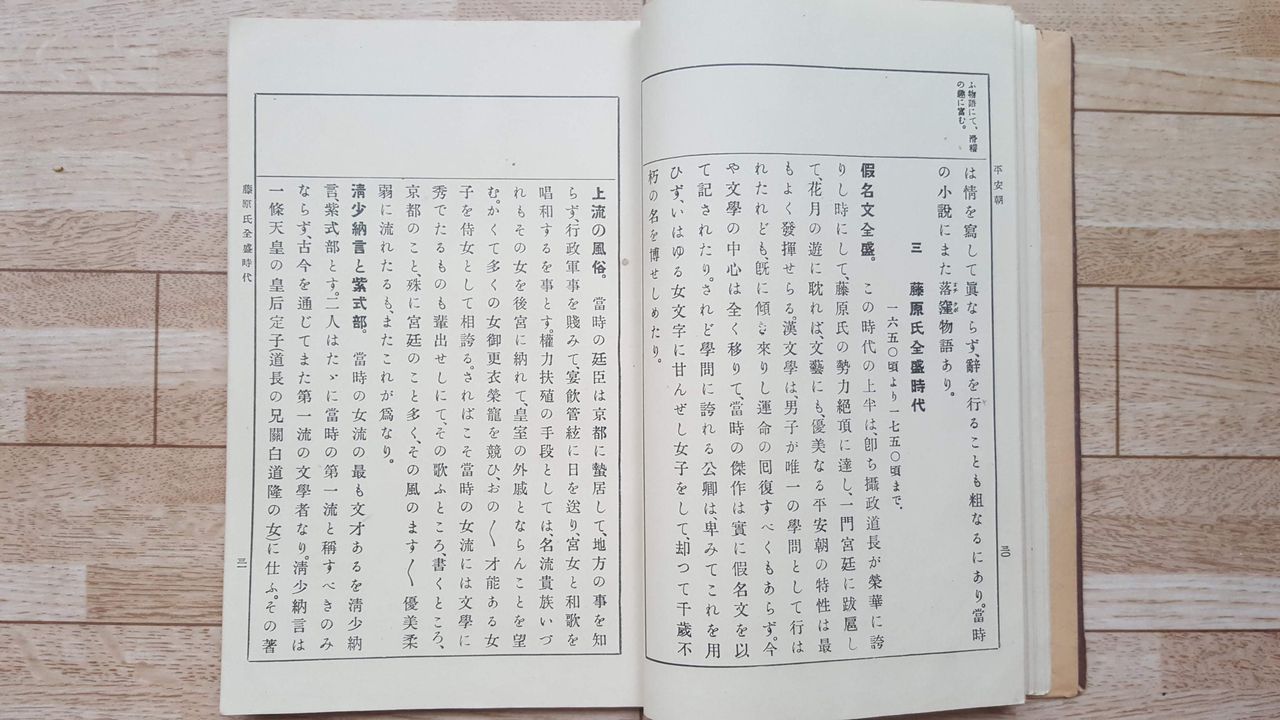 平安朝
三〇
ふ物語にて、滑稽
の趣に富む。
は情を寫して眞ならず、辭を行ることも粗なるにあり。當時
の小說にまた落窪物語あり。
三　藤原氏全盛時代
一六五〇頃より一七五〇頃まで。
假名文全盛。　この時代の上半は、卽ち攝政道長が榮華に誇
りし時にして、藤原氏の勢力絕頂に達し、一門宮廷に跋扈し
て、花月の遊に耽れば、文藝にも、優美なる平安朝の特性は最
もよく發揮せらる。漢文學は、男子が唯一の學問として行は
れたれども、旣に傾き來りし運命の囘復すべくもあらず。今
や文學の中心は全く移りて、當時の傑作は實に假名文を以
て記されたり。されど學問に誇れる公卿は卑みてこれを用
ひず、いはゆる女文字に甘んぜし女子をして、却つて千歲不
朽の名を博せしめたり。
上流の風俗。　當時の廷臣は京都に蟄居して、地方の事を知
らず、行政軍事を賤みて、宴飮管絃に日を送り、宮女と和歌を
唱和するを事とす。權力扶殖の手段としては名流貴族いづ
れもその女を後宮に納れて、皇室の外戚とならんことを望
む。かくて多くの女御更衣榮寵を競ひ、おの〱才能ある女
子を侍女として相誇る。さればこそ當時の女流には文學に
秀でたるものも輩出せしにて、その歌ふところ、書くところ、
京都のこと、殊に宮廷のこと多く、その風のます〱優美柔
弱に流れたるも、またこれが爲なり。
淸少納言と紫式部。　當時の女流の最も文才あるを淸少納
言、紫式部とす。二人はたゞに當時の第一流と稱すべきのみ
ならず、古今を通じてまた第一流の文學者なり。淸少納言は
一條天皇の皇后定子(道長の兄關白道隆の女)に仕ふ。その著
藤原氏全盛時代
三一